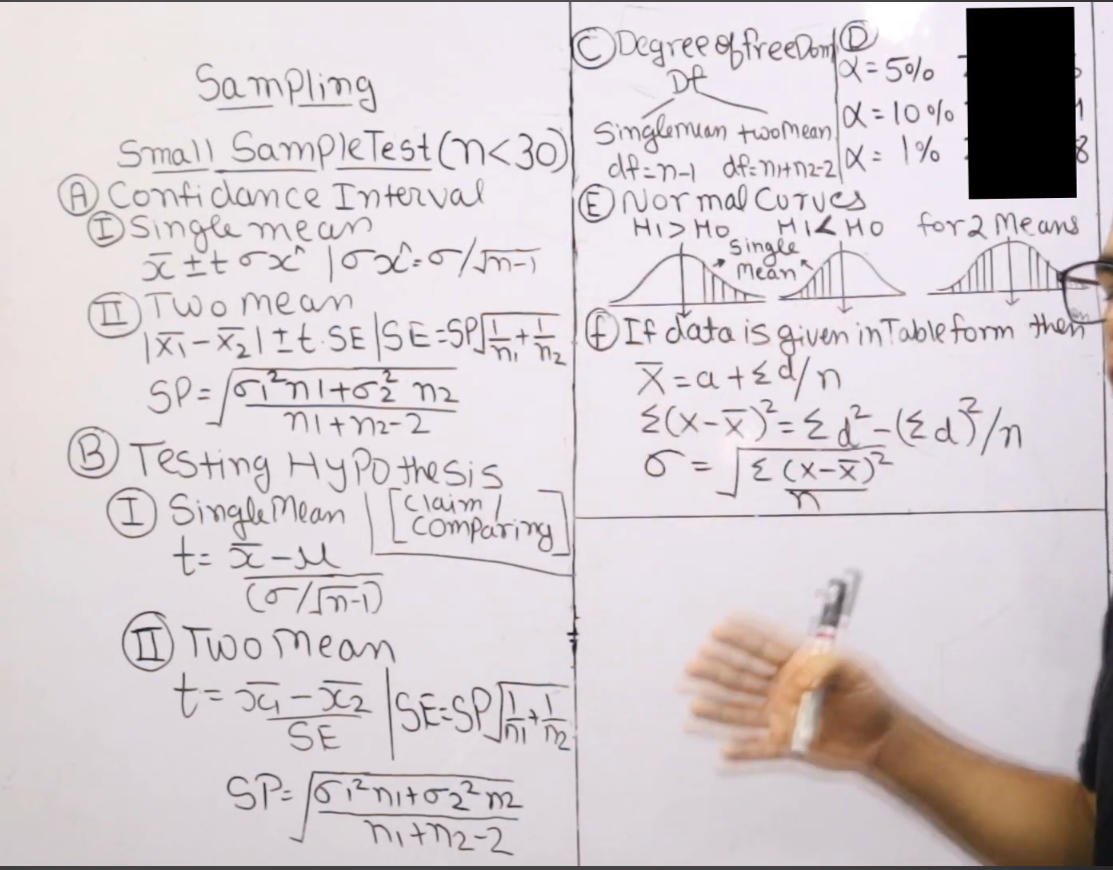 Sampling
Small Sample Test (n<30)
Ⓐ Confidance Interval
Ⓘ Single mean
x̄ ± t σx̂ | σx̂ = σ/√n-1
Ⅱ Two mean
|x̄1 - x̄2| ± t·SE | SE = SP√1/n1 + 1/n2
SP = √σ1²n1 + σ2² n2 / n1+n2-2
Ⓑ Testing Hypothesis
Ⅰ Single Mean | [Claim / Comparing]
t = x̄ - μ / (σ/√n-1)
Ⅱ Two mean
t = x̄1 - x̄2 / SE | SE = SP√1/n1 + 1/n2
SP = √σ1²n1 + σ2²n2 / n1+n2-2
Ⓒ Degree of freeDom
Df
Singlemean two Mean
df = n-1 df = n1+n2-2
Ⓓ
α = 5%
α = 10%
α = 1% 8
Ⓔ Normal Curves
H1 > H0 H1 < H0 for 2 Means
Single
Mean
ⓕ If data is given in Table form then
X̄ = a + Σd/n
Σ(x-x̄)² = Σd² - (Σd)²/n
σ = √Σ(x-x̄)²/n